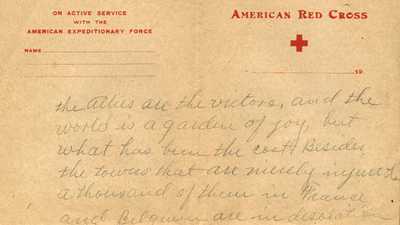 ON ACTIVE SERVICE
WITH THE
AMERICAN EXPEDITIONARY FORCE
NAME
AMERICAN RED CROSS
19
the allies are the victors, and the
world is a garden of joy, but
what has been the cost. Besides
the towns that are merely injured
a thousand of them in France
and Belgium are in desolation